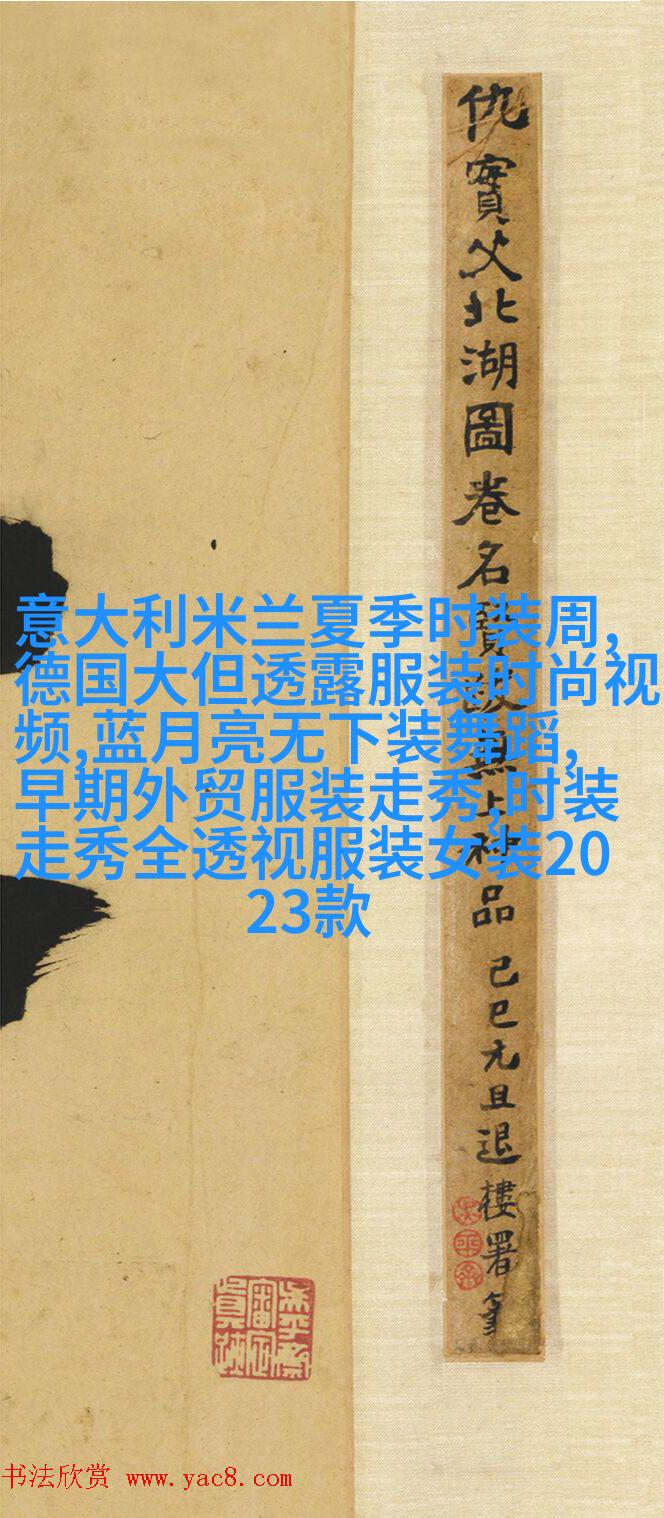 仇實父北湖圖卷名賢跋無上神品
己巳元旦退樓署
意大利米兰夏季时装周,
德国大但透露服装时尚视
频,蓝月亮无下装舞蹈,
早期外贸服装走秀,时装
走秀全透视服装女装20
23款
书法欣赏 www.yac8.com